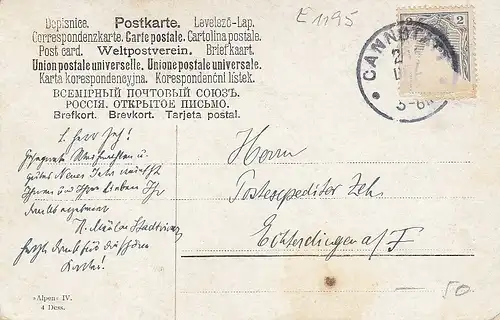 Dopisnice. Postkarte. Levelező-Lap.
Correspondenzkarte. Carte postale. Cartolina postale.
Post card. Weltpostverein. Brief kaart.
Union postale universelle. Unione postale universale.
Karta korespondencyjna. Korespondenční lístek.
ВСЕМІРНЫЙ ПОЧТОВЫЙ СОЮЗЪ.
РОССІЯ. ОТКРЫТОЕ ПИСЬМО.
Brefkort. Brevkort. Tarjeta postal.
E 1195
CANNSTATT
2
L. Herr Zeh!
Gesegnete Weihnachten u.
gutes Neues Jahr wünscht
Ihnen und Ihren Lieben Ihr
dankt ergebenst
Herzl. Dank für die schöne
Karte!
Herrn
Postexpeditor Zeh
Echterdingen a/F
»Alpen« IV.
4 Dess.
50